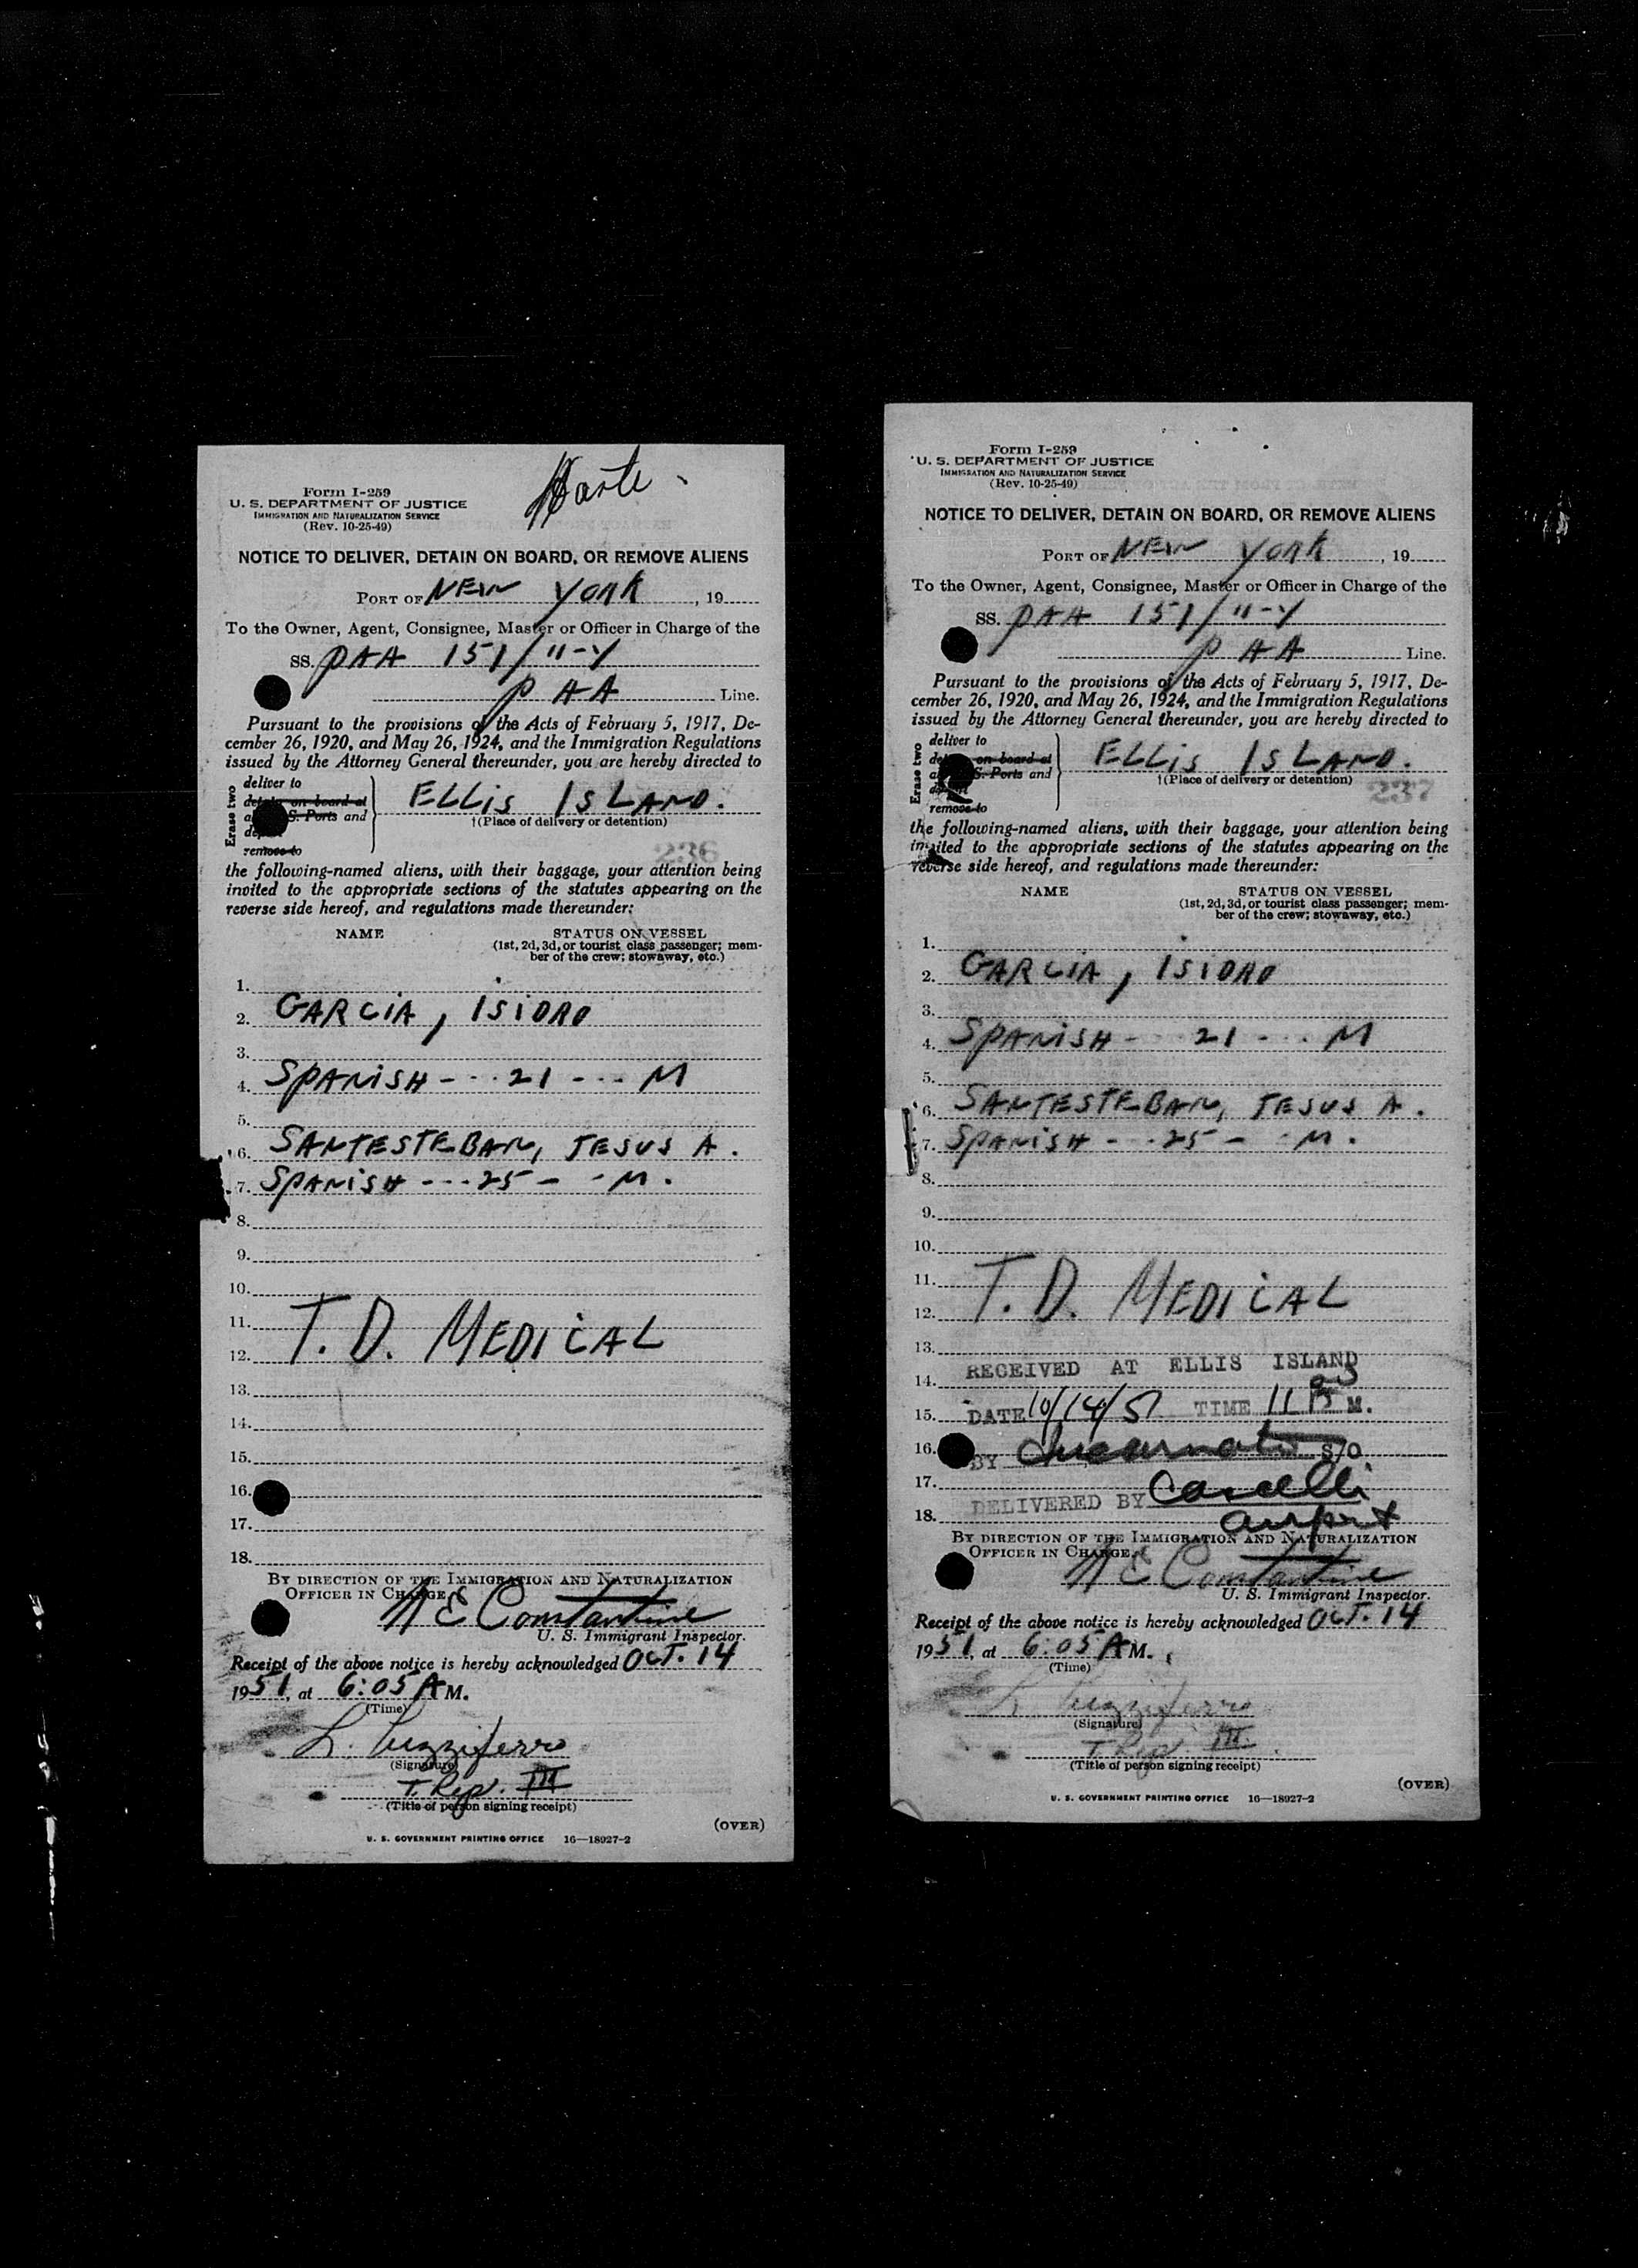 Form I-259
U. S. DEPARTMENT OF JUSTICE
IMMIGRATION AND NATURALIZATION SERVICE
(Rev. 10-25-49)
NOTICE TO DELIVER, DETAIN ON BOARD, OR REMOVE ALIENS
PORT OF NEW YORK, 19
To the Owner, Agent, Consignee, Master or Officer in Charge of the
SS. PAA 151/11-Y
PAA Line.
Pursuant to the provisions of the Acts of February 5, 1917, De-
cember 26, 1920, and May 26, 1924, and the Immigration Regulations
issued by the Attorney General thereunder, you are hereby directed to
Erase two
deliver to
on board at
S. Ports and
remove to
ELLIS ISLAND.
†(Place of delivery or detention)
236
the following-named aliens, with their baggage, your attention being
invited to the appropriate sections of the statutes appearing on the
reverse side hereof, and regulations made thereunder:
NAME STATUS ON VESSEL
(1st, 2d, 3d, or tourist class passenger; mem-
ber of the crew; stowaway, etc.)
1.
2. GARCIA, ISIDRO
3.
4. SPANISH - - - 21 - - - M
5.
6. SANTESTEBAN, JESUS A.
7. SPANISH - - - 25 - - M.
8.
9.
10.
11.
12. T. D. MEDICAL
13.
14.
15.
16.
17.
18.
BY DIRECTION OF THE IMMIGRATION AND NATURALIZATION
OFFICER IN CHARGE
N E Constantine
U. S. Immigrant Inspector.
Receipt of the above notice is hereby acknowledged OCT. 14
1951, at 6:05 A M.
(Time)
L. Luzziferro
(Signature)
T. Rep. III
(Title of person signing receipt)
(OVER)
U. S. GOVERNMENT PRINTING OFFICE 16—18927-2
Form I-259
U. S. DEPARTMENT OF JUSTICE
IMMIGRATION AND NATURALIZATION SERVICE
(Rev. 10-25-49)
NOTICE TO DELIVER, DETAIN ON BOARD, OR REMOVE ALIENS
PORT OF NEW YORK, 19
To the Owner, Agent, Consignee, Master or Officer in Charge of the
SS. PAA 151/11-Y
PAA Line.
Pursuant to the provisions of the Acts of February 5, 1917, De-
cember 26, 1920, and May 26, 1924, and the Immigration Regulations
issued by the Attorney General thereunder, you are hereby directed to
Erase two
deliver to
on board at
S. Ports and
remove to
ELLIS ISLAND.
†(Place of delivery or detention)
237
the following-named aliens, with their baggage, your attention being
invited to the appropriate sections of the statutes appearing on the
reverse side hereof, and regulations made thereunder:
NAME STATUS ON VESSEL
(1st, 2d, 3d, or tourist class passenger; mem-
ber of the crew; stowaway, etc.)
1.
2. GARCIA, ISIDRO
3.
4. SPANISH - - - 21 - - - M
5.
6. SANTESTEBAN, JESUS A.
7. SPANISH - - - 25 - - M.
8.
9.
10.
11.
12. T. D. MEDICAL
13.
RECEIVED AT ELLIS ISLAND
14.
15. DATE 10/14/51 TIME 11 M.
16. BY S/O
17.
DELIVERED BY
18. airport
BY DIRECTION OF THE IMMIGRATION AND NATURALIZATION
OFFICER IN CHARGE.
N E Constantine
U. S. Immigrant Inspector.
Receipt of the above notice is hereby acknowledged OCT. 14
1951, at 6:05 A M.
(Time)
L. Luzziferro
(Signature)
T. Rep III
(Title of person signing receipt)
(OVER)
U. S. GOVERNMENT PRINTING OFFICE 16—18927-2